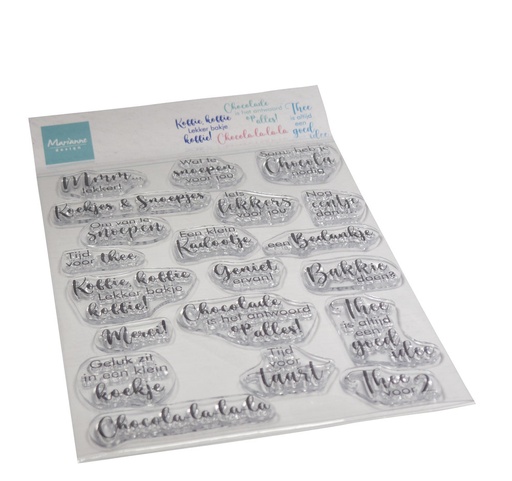 Marianne
DESIGN
Koffie, koffie
Lekker bakje
koffie!
Chocolade
is het antwoord
op alles!
Chocola-la-la-la
Thee
is altijd
een
goed
idee
Mmm
lekker!
Wat te
snoepen
voor jou
Soms heb je
Chocola
nodig
Koekjes & Snoepjes
Iets
lekkers
voor jou
Nog
eentje
dan?
Om van te
snoepen
Een klein
Kadootje
een Bedankje
Tijd
voor thee
Koffie, koffie
Lekker bakje
koffie!
Geniet
ervan!
Bakkie
doen?
Merci!
Chocolade
is het antwoord
op alles!
Thee
is altijd
een
goed
idee
Geluk zit
in een klein
koekje
Tijd
voor
taart
Thee
voor 2
Chocola-la-la-la